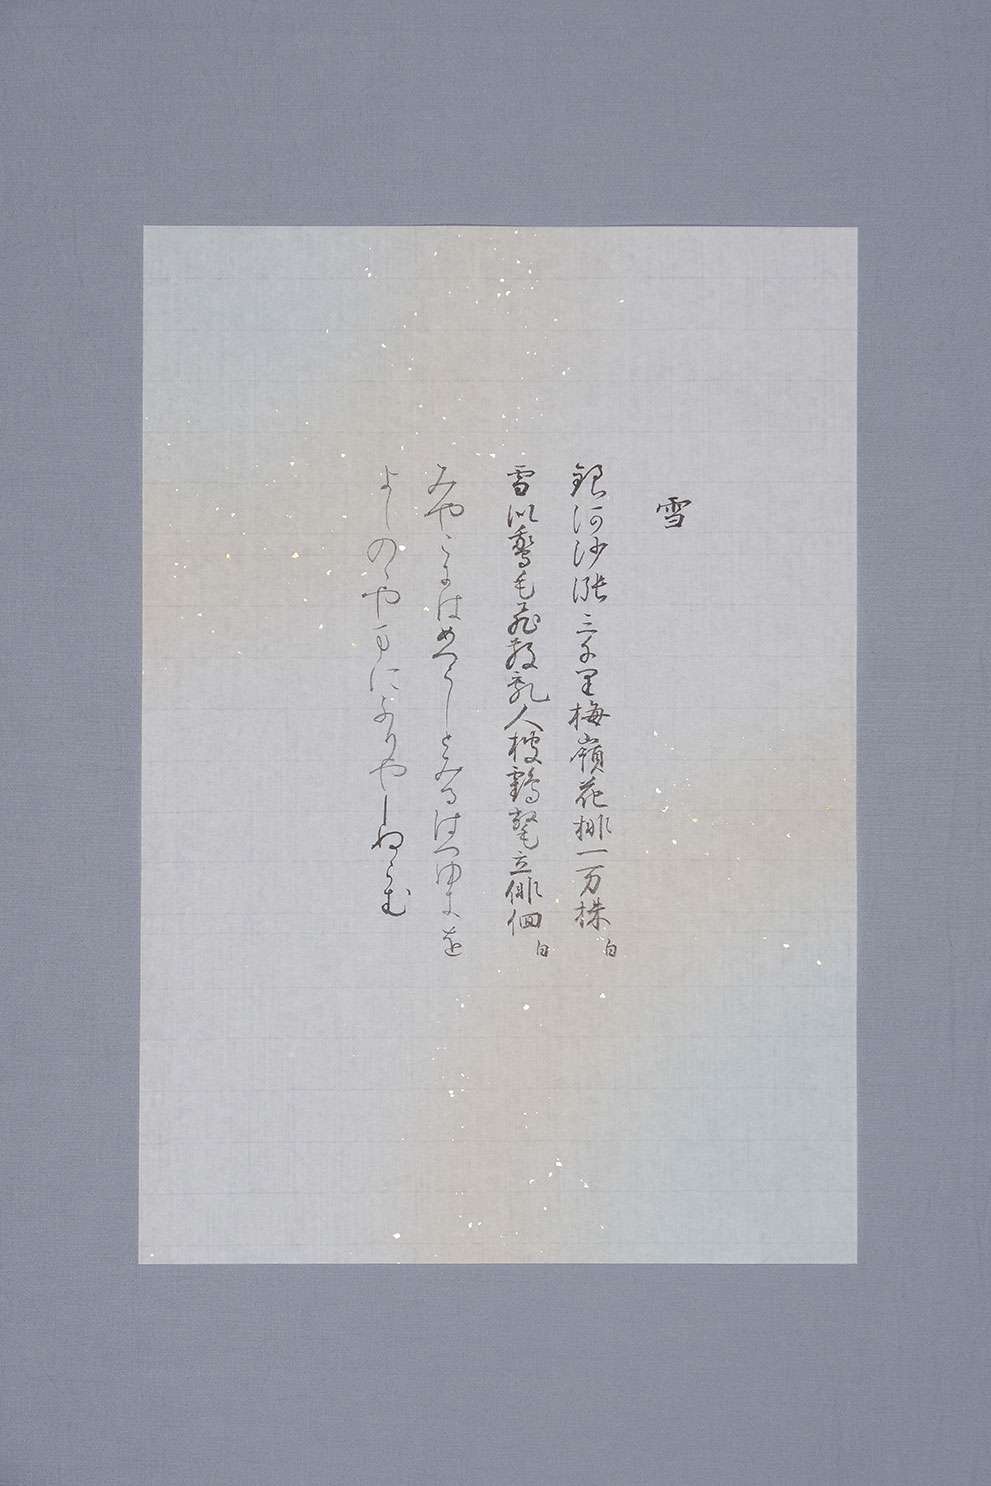 雪
銀河沙漲三千里梅嶺花排一万株 白
雪似鵞毛飛散乱人被鶴氅立俳佪 白
みやこにはめつらしとみるはつゆきを
よしのゝやまにふりやしぬらむ